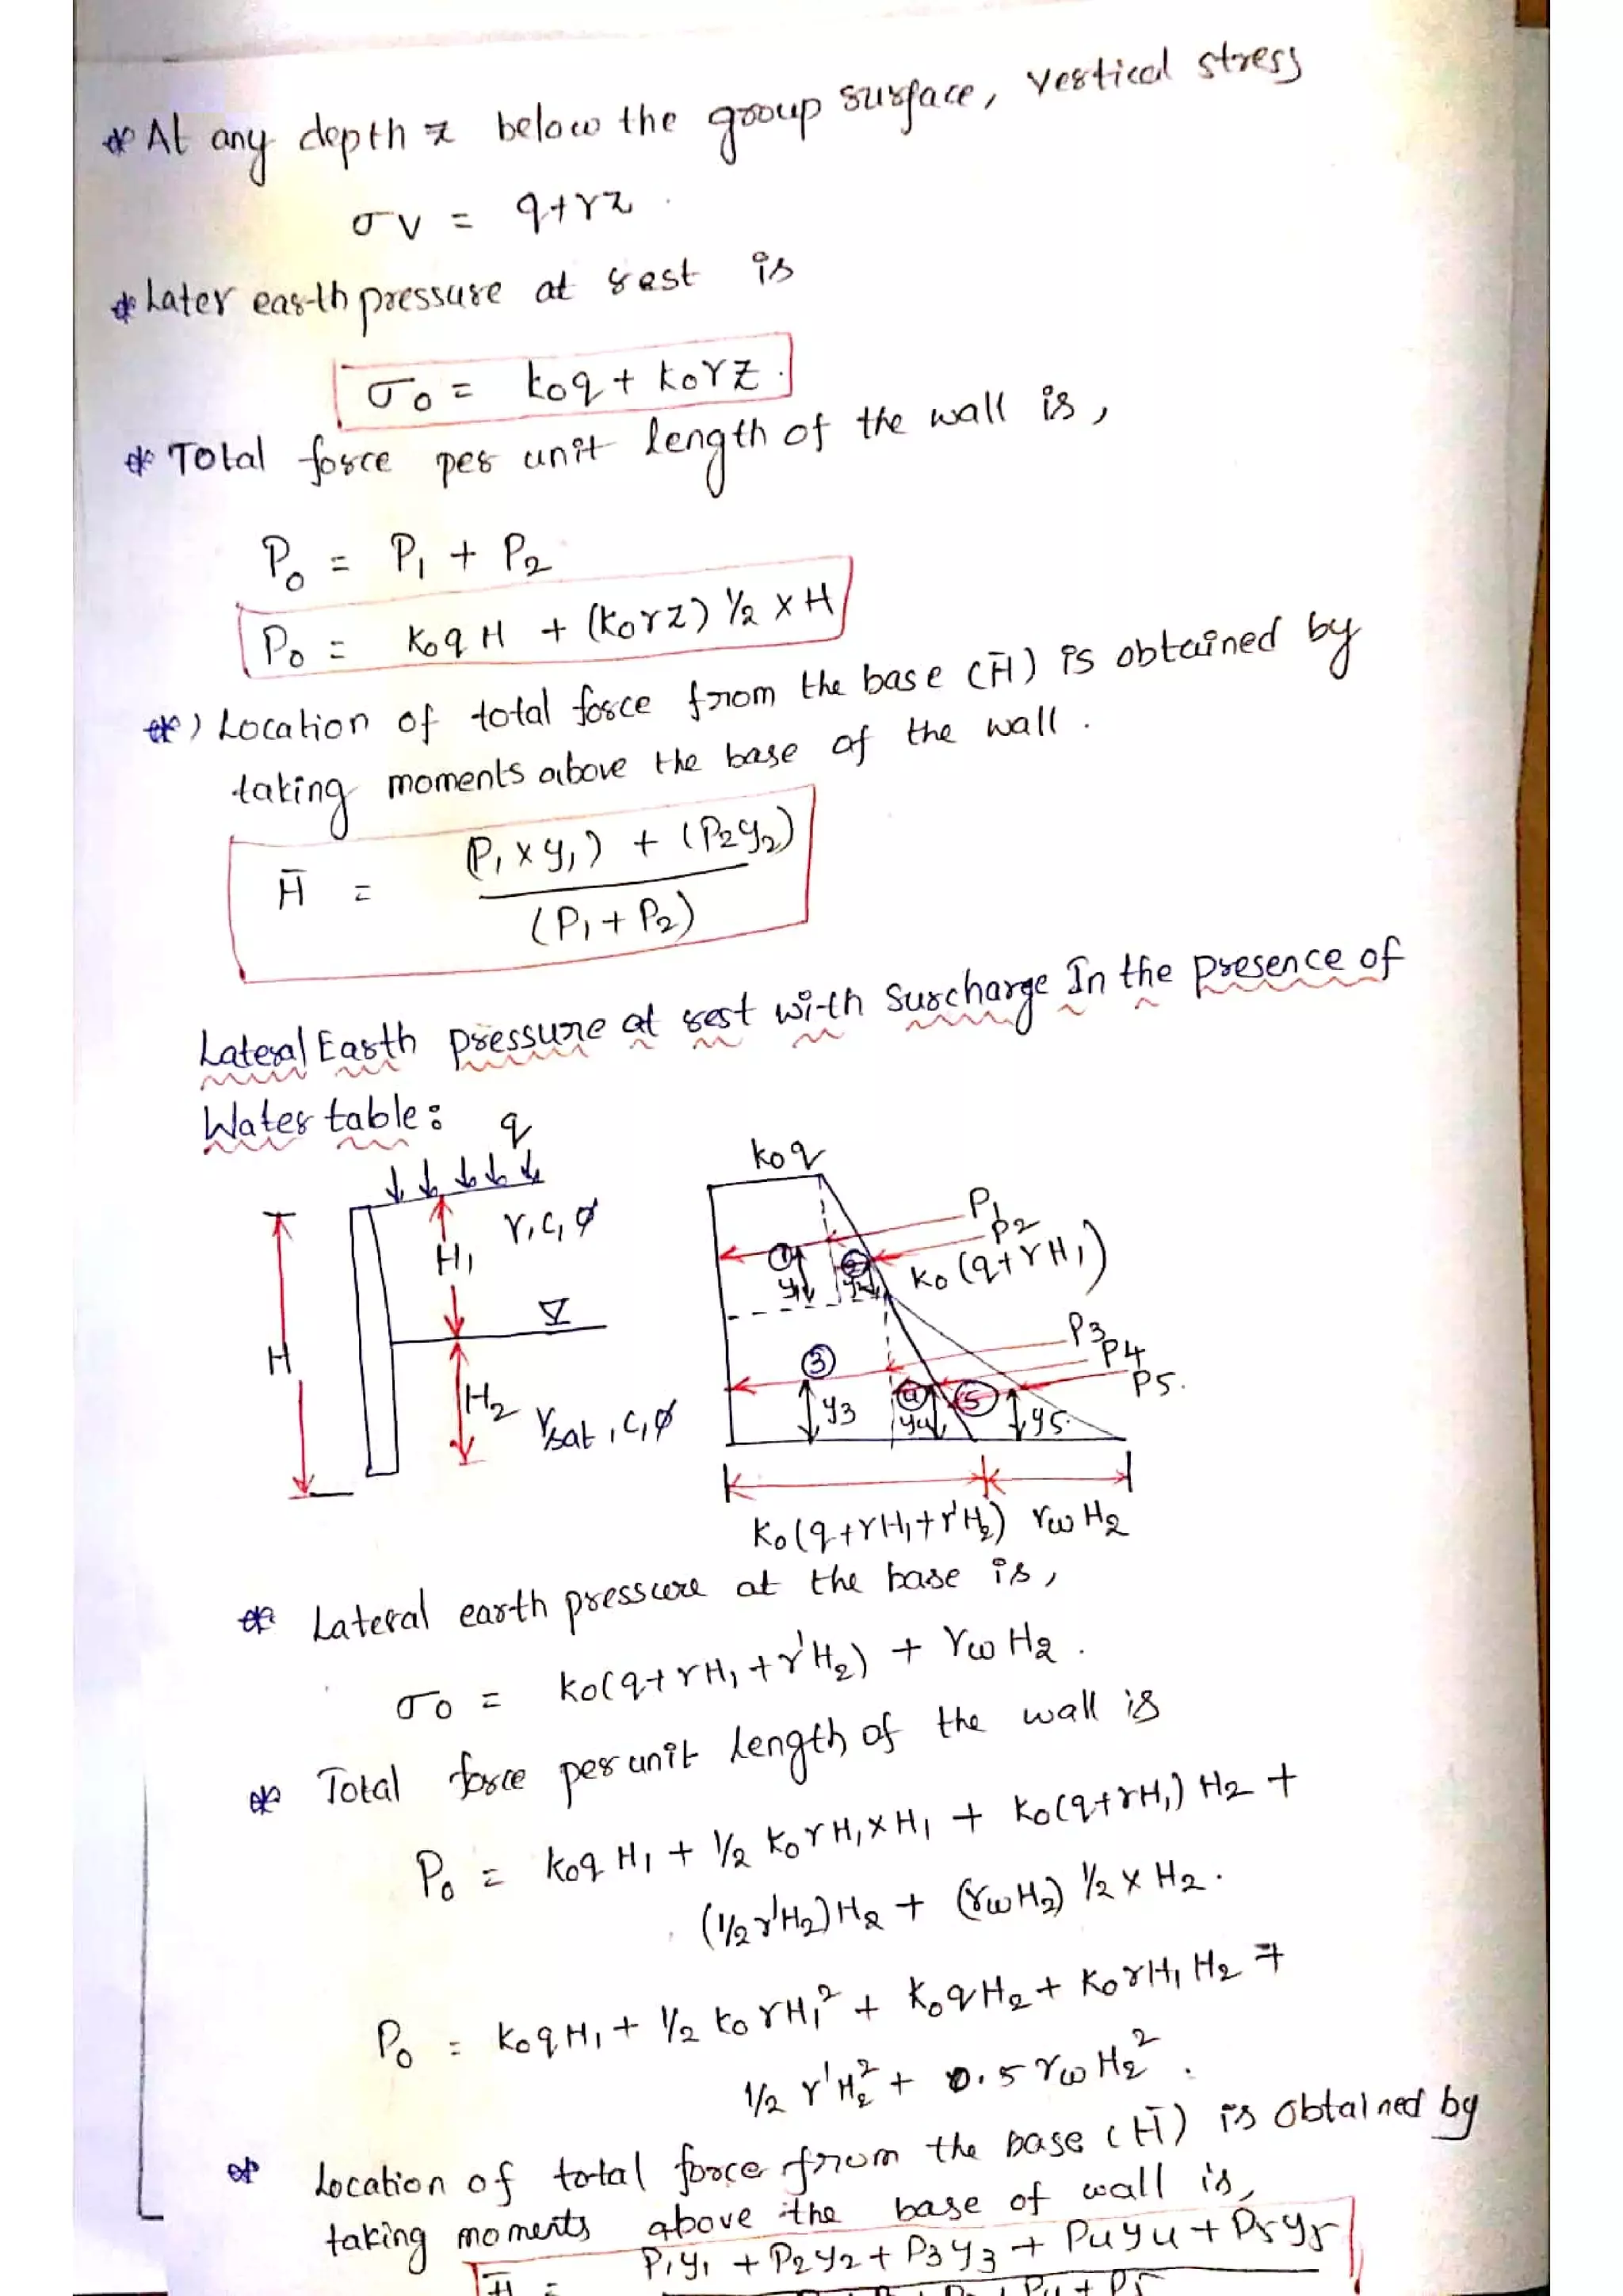 * At any depth z below the group surface, vertical stress
σv = q+γz
* Later earth pressure at rest is
σ0 = k0q + k0γz.
* Total force per unit length of the wall is,
P0 = P1 + P2
P0 = K0qH + (K0γz) 1/2 × H
*) Location of total force from the base (H̄) is obtained by
taking moments above the base of the wall.
H̄ = (P1 × y1) + (P2y2)
(P1 + P2)
Lateral Earth pressure at rest with Surcharge In the presence of
Water table:
q
γ, c, φ
H1
H
H2
γsat, c, φ
k0q
P1
P2
1
2
y1
y2
K0 (q+γH1)
P3
P4
P5.
3
4
5
y3
y4
y5
K0(q+γH1+γ'H2) γωH2
* Lateral earth pressure at the base is,
σ0 = k0(q+γH1+γ'H2) + γωH2.
* Total force per unit length of the wall is
P0 = k0qH1 + 1/2 k0γH1×H1 + K0(q+γH1) H2 +
(1/2γ'H2)H2 + (γωH2) 1/2 × H2.
P0 = K0qH1 + 1/2 k0γH1² + K0qH2 + K0γH1H2 +
1/2 γ'H2² + 0.5γωH2².
* Location of total force from the base (H̄) is obtained by
taking moments above the base of wall is,
H̄ = P1y1 + P2y2 + P3y3 + P4y4 + P5y5
P4 + P5